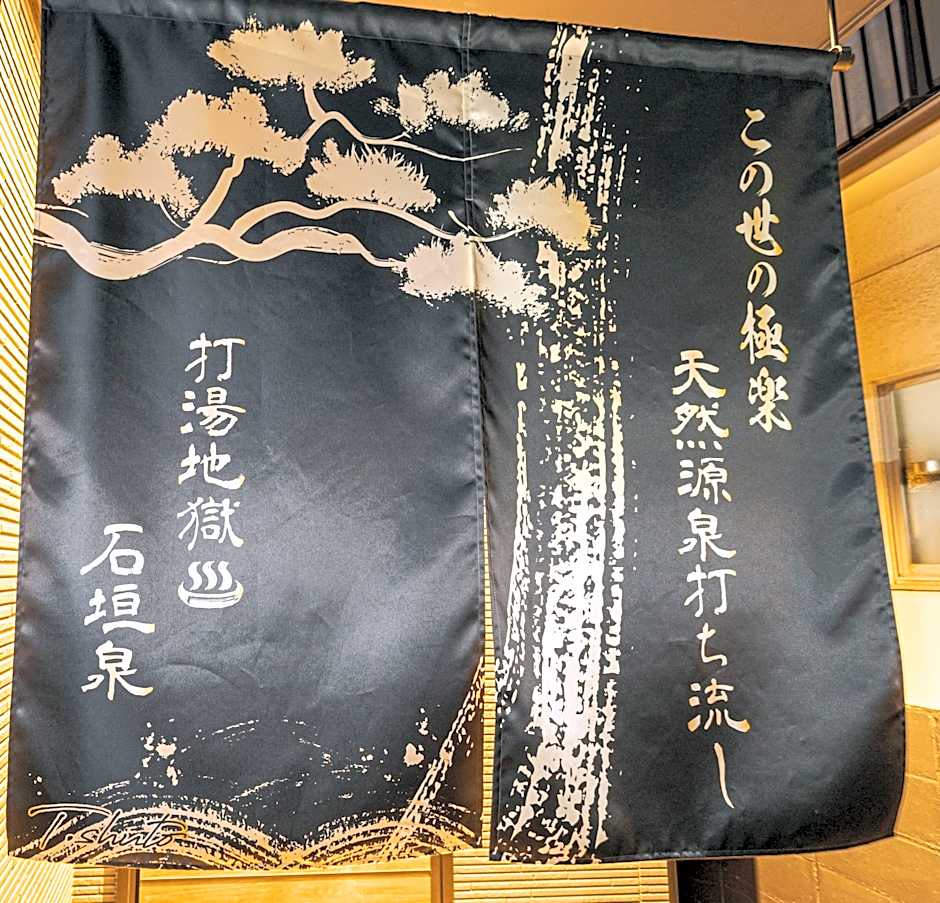 この世の極楽
天然源泉打ち流し
打湯地獄♨
石垣泉